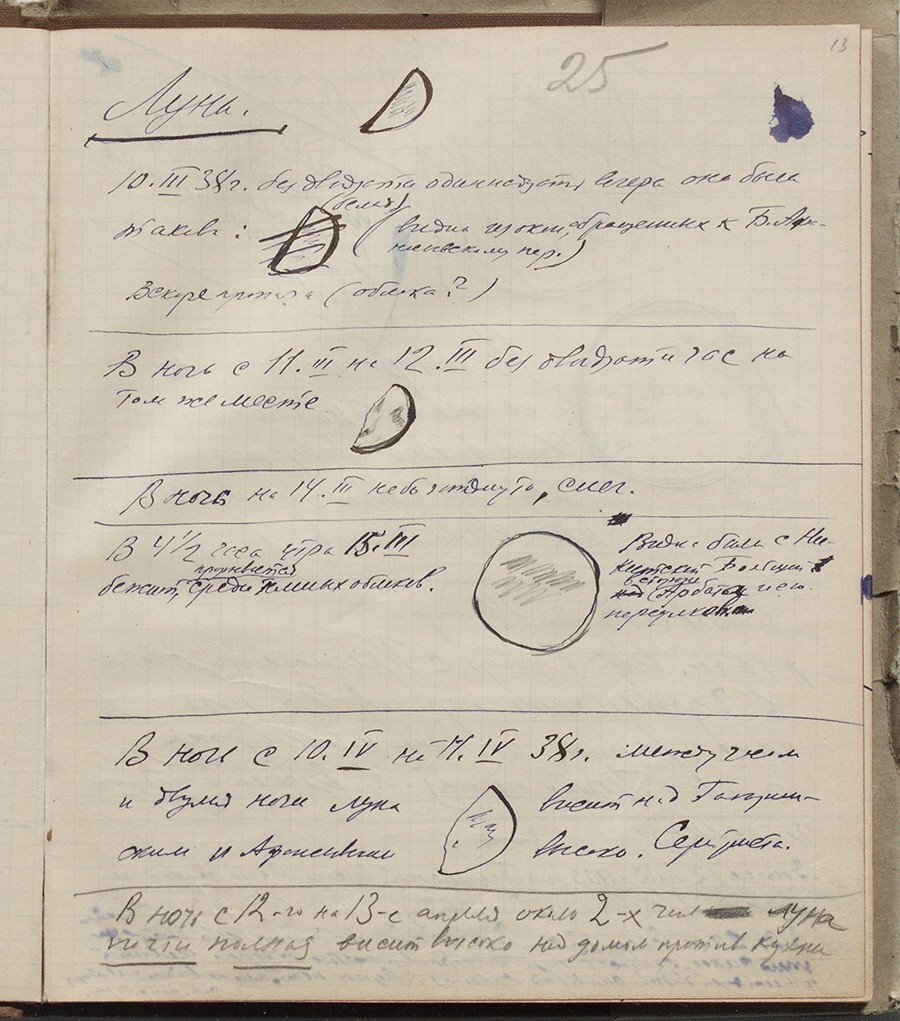 13
25
Луна.
10.III 38 г. без двадцати одиннадцать вечера она была
(белая)
такова: (видна из окон, обращенных к Б. Афа-
насьевскому пер.)
Вскоре пропала (облака?)
В ночь с 11.III на 12.III без двадцати час на
том же месте
В ночь на 14.III небо затянуто, снег.
В 4 1/2 часа утра 15.III
прорывается
бежит, среди тёмных облаков.
Видна была с Ни-
китский Большой
(Арбат
переулков
В ночь с 10.IV на 11.IV 38 г. между часом
и двумя ночи луна висит над Гагарин-
ским и Афанасьевским высоко. Серебриста.
В ночь с 12-го на 13-е апреля около 2-х часов луна
почти полная висит высоко над домом против кухни